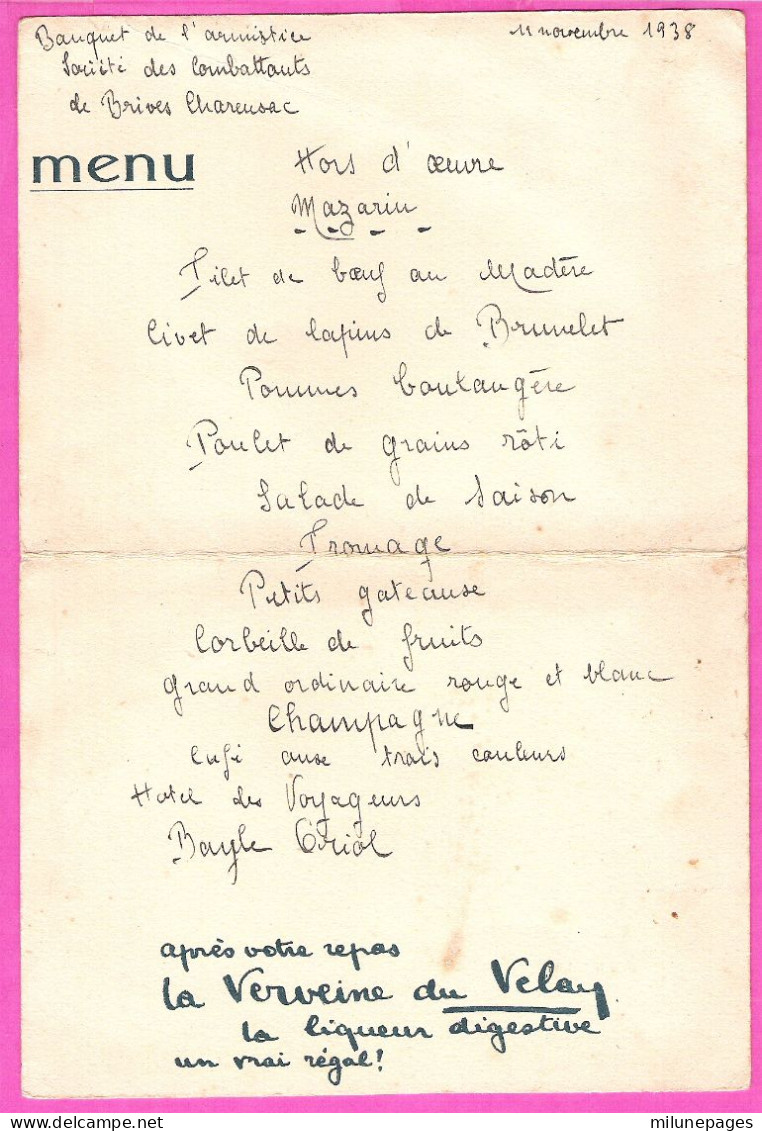 Banquet de l'armistice
11 novembre 1938
Société des Combattants
de Brives Charensac
menu
Hors d'œuvre
Mazarin
Filet de bœuf au Madère
Civet de lapins de Brunelet
Pommes boulangère
Poulet de grains rôti
Salade de Saison
Fromage
Petits gateaux
Corbeille de fruits
Grand ordinaire rouge et blanc
Champagne
Café aux trois couleurs
Hotel des Voyageurs
Bayle Oriol
après votre repas
la Verveine du Velay
la liqueur digestive
un vrai régal!
milunepages